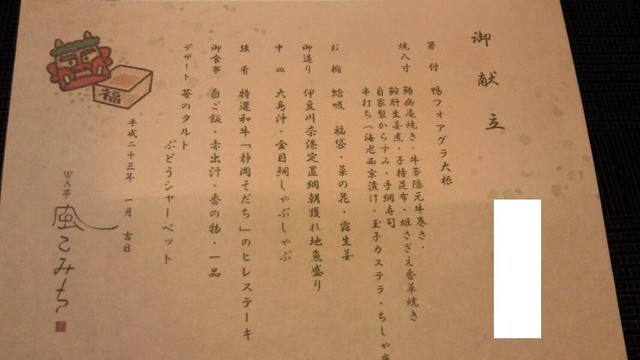 御献立
箸付 鴨フォアグラ大根
焼八寸 鶏松風焼き・牛蒡隠元牛巻き・
鮟肝生姜煮・子持昆布・姫さざえ香草焼き
自家製からすみ・手綱寿司
串打ち(海老西京漬け・玉子カステラ・ちしゃ
お椀 蛤吸 福袋・菜の花・露生姜
御造り 伊豆川奈港定置網朝獲れ地魚盛り
中皿 大島汁・金目鯛しゃぶしゃぶ
強肴 特選和牛「静岡そだち」のヒレステーキ
御食事 白ご飯・赤出汁・香の物・一品
デザート 苺のタルト
ぶどうシャーベット
平成二十三年 一月 吉日
WA亭
風こみち
福